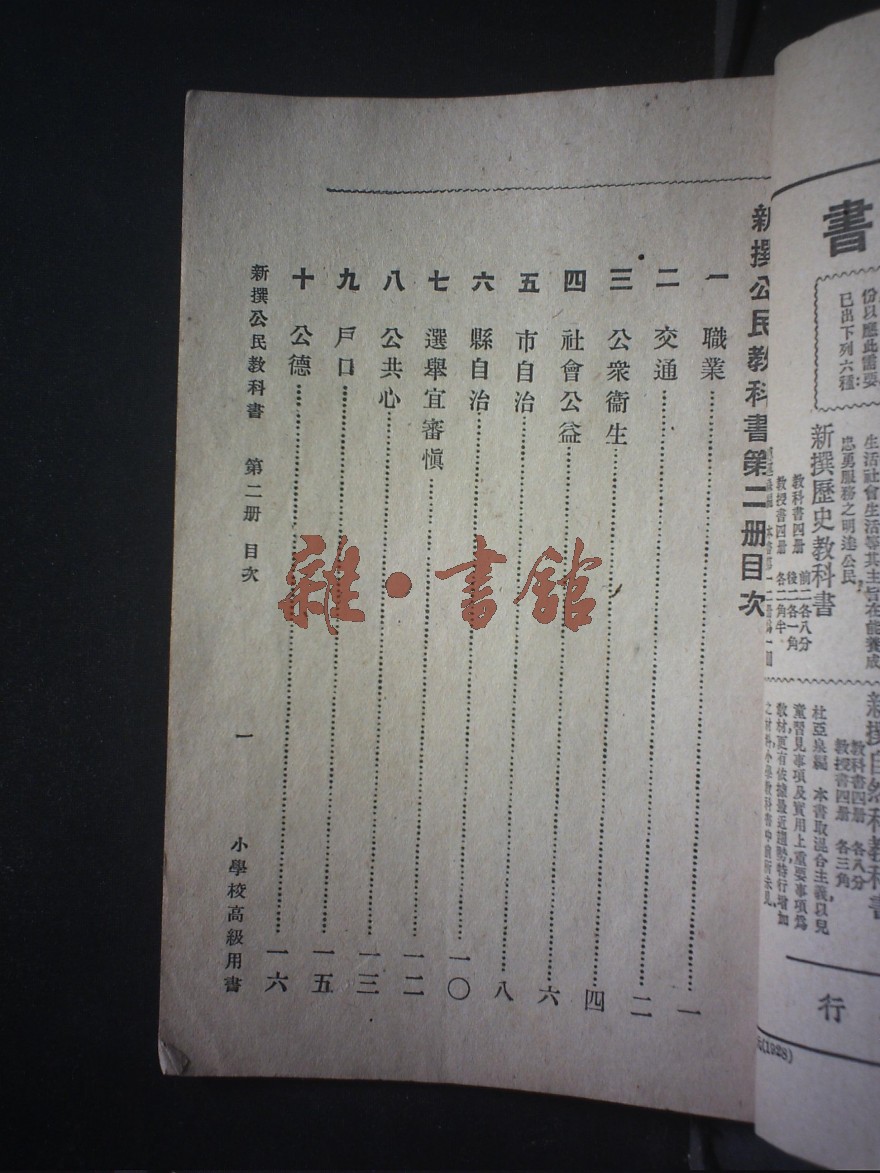 新撰公民教科書第二册目次
一 職業 一
二 交通 二
三 公衆衞生 四
四 社會公益 六
五 市自治 八
六 縣自治 一〇
七 選舉宜審慎 一二
八 公共心 一三
九 戶口 一五
十 公德 一六
新撰公民教科書 第二册 目次 一 小學校高級用書
雜·書館
書
份以應此需要
已出下列六種
生活社會生活等其主旨在能養成
忠勇服務之明達公民
新撰歷史教科書
教科書四册 前二各八分 後二各一角
教授書四册 各二角半
新撰自然科教科書
教科書四册 各八分
教授書四册 各三角
杜亞泉編 本書取混合主義以兒
童習見事項及實用上重要事項爲
教材更有依據最近趨勢特行增加
行
(1928)